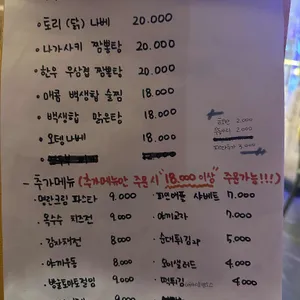 • 토리 (닭) 나베 20.000
• 나가사키 짬뽕탕 20.000
• 한우 우삼겹 짬뽕탕 20.000
• 매콤 백생합 술찜 18.000
• 백생합 맑은탕 18.000
• 오뎅나베 18.000
2.000
2.000
3.000
- 추가메뉴 (추가메뉴만 주문시 "18.000 이상" 주문가능!!!)
• 명란크림 파스타 9.000
• 파인애플 샤베트 7.000
• 옥수수 치즈전 9.000
• 야끼교자 7.000
• 감자채전 8.000
• 순대튀김 5.000
• 야끼우동 8.000
• 오이샐러드 4.000
• 방울토마토절임 9.000
• 떡튀김 4.000